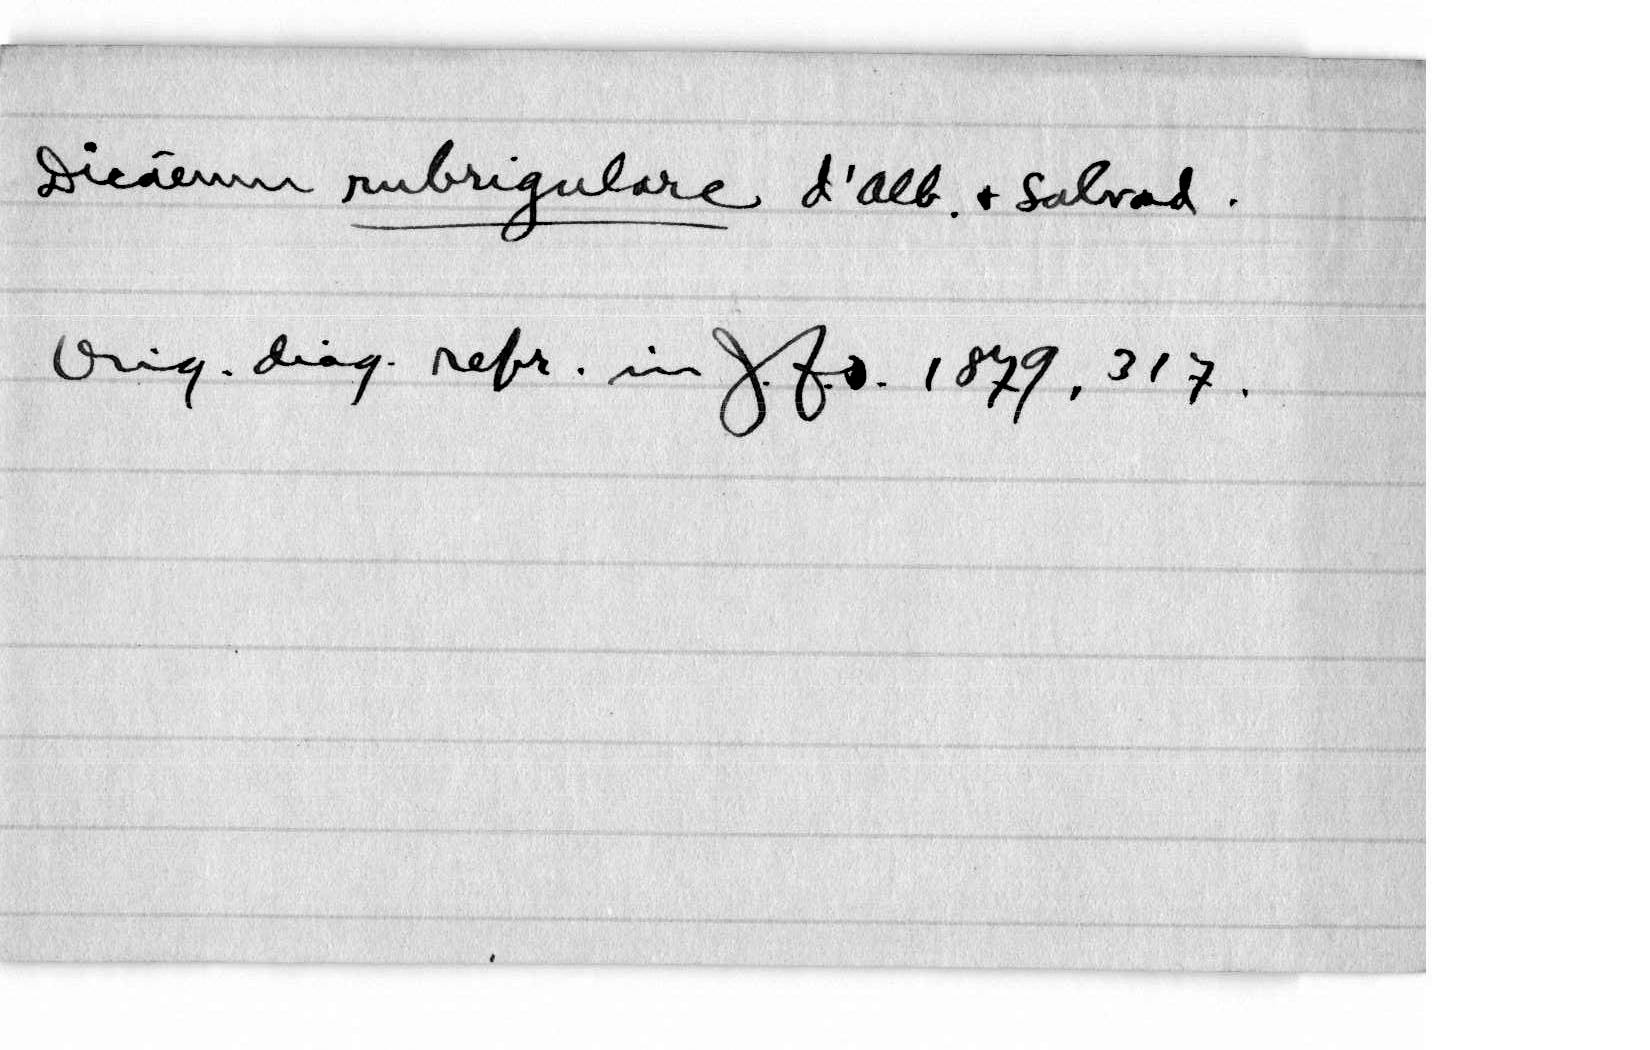 Dicaeum rubrigulare d'Alb. + Salvad.
Orig. diag. repr. in J.f.O. 1879, 317.